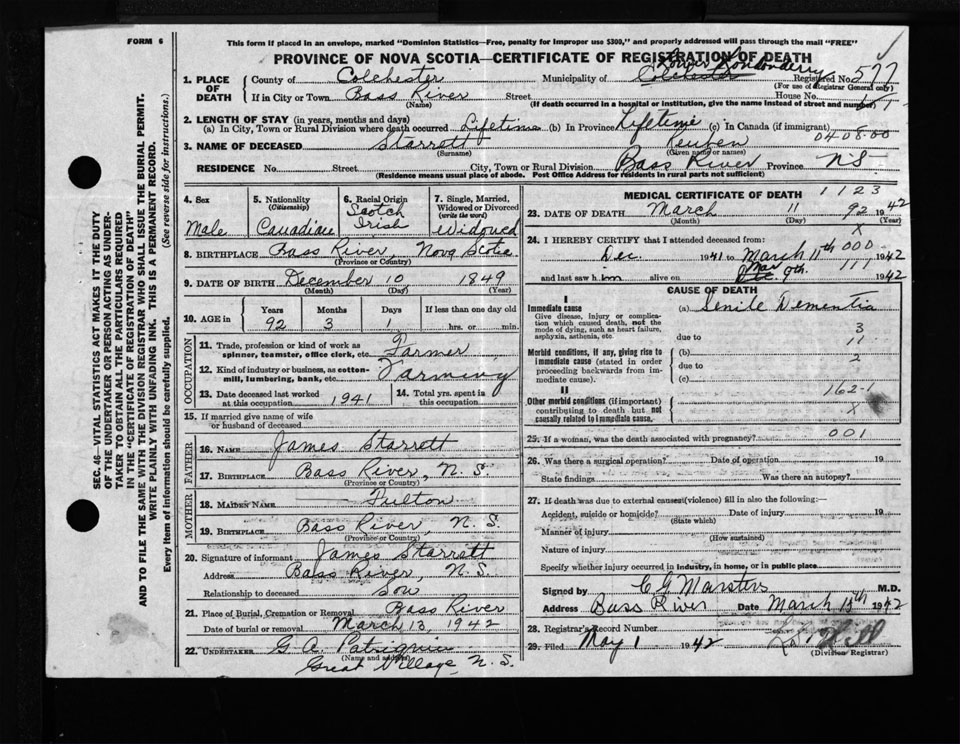 FORM 6
This form if placed in an envelope, marked "Dominion Statistics—Free, penalty for improper use $300," and properly addressed will pass through the mail "FREE"
PROVINCE OF NOVA SCOTIA—CERTIFICATE OF REGISTRATION OF DEATH
1. PLACE OF DEATH County of Colchester Municipality of Colchester Londonderry Registered No. 577
(For use of Registrar General only)
If in City or Town Bass River Street House No.
(Name) (If death occurred in a hospital or institution, give the name instead of street and number)
2. LENGTH OF STAY (in years, months and days)
(a) In City, Town or Rural Division where death occurred Lifetime (b) In Province Lifetime (c) In Canada (if immigrant)
04 08.00
3. NAME OF DECEASED Starrett Reuben
(Surname) (Given name or names)
RESIDENCE No. Street City, Town or Rural Division Bass River Province N.S.
(Residence means usual place of abode. Post Office Address for residents in rural parts not sufficient)
4. Sex Male
5. Nationality (Citizenship) Canadian
6. Racial Origin Scotch Irish
7. Single, Married, Widowed or Divorced (write the word) Widowed
8. BIRTHPLACE Bass River, Nova Scotia
(Province or Country)
9. DATE OF BIRTH December 10 1849
(Month) (Day) (Year)
10. AGE in Years Months Days If less than one day old
92 3 1 hrs. or min.
OCCUPATION
11. Trade, profession or kind of work as spinner, teamster, office clerk, etc. Farmer
12. Kind of industry or business, as cotton-mill, lumbering, bank, etc. Farming
13. Date deceased last worked at this occupation 1941 14. Total yrs. spent in this occupation
15. If married give name of wife or husband of deceased
FATHER
16. NAME James Starrett
17. BIRTHPLACE Bass River, N.S.
(Province or Country)
MOTHER
18. MAIDEN NAME Fulton
19. BIRTHPLACE Bass River, N.S.
(Province or Country)
20. Signature of informant James Starrett
Address Bass River, N.S.
Relationship to deceased son
21. Place of Burial, Cremation or Removal Bass River
Date of burial or removal March 13, 1942
22. UNDERTAKER G. A.
(Name and address)
Great Village, N.S.
MEDICAL CERTIFICATE OF DEATH
1123
23. DATE OF DEATH March 11 92 1942
(Month) (Day) (Year)
X
24. I HEREBY CERTIFY that I attended deceased from:
Dec. 1941 to March 11th 000 1942
and last saw him alive on Dec. Mar 9th. 111 1942
CAUSE OF DEATH
I
Immediate cause (a) Senile Dementia
Give disease, injury or complication which caused death, not the mode of dying, such as heart failure, asphyxia, asthenia, etc.
3
due to
11
Morbid conditions, if any, giving rise to immediate cause (stated in order proceeding backwards from immediate cause).
(b)
2
due to
(c)
II
162-1
Other morbid conditions (if important) contributing to death but not causally related to immediate cause.
X
25. If a woman, was the death associated with pregnancy? 001
26. Was there a surgical operation? Date of operation 19
State findings Was there an autopsy?
27. If death was due to external causes (violence) fill in also the following:—
Accident, suicide or homicide? Date of injury 19
(State which)
Manner of injury
(How sustained)
Nature of injury
Specify whether injury occurred in industry, in home, or in public place
Signed by C G Marsters M.D.
Address Bass River Date March 13th 1942
28. Registrar's Record Number
29. Filed May 1 1942 Hill
(Division Registrar)
SEC. 46—VITAL STATISTICS ACT MAKES IT THE DUTY
OF THE UNDERTAKER OR PERSON ACTING AS UNDERTAKER
TO OBTAIN ALL THE PARTICULARS REQUIRED
IN THE "CERTIFICATE OF REGISTRATION OF DEATH"
AND TO FILE THE SAME WITH THE DIVISION REGISTRAR WHO SHALL ISSUE THE BURIAL PERMIT.
WRITE PLAINLY WITH UNFADING INK. THIS IS A PERMANENT RECORD.
Every item of information should be carefully supplied. (See reverse side for instructions.)